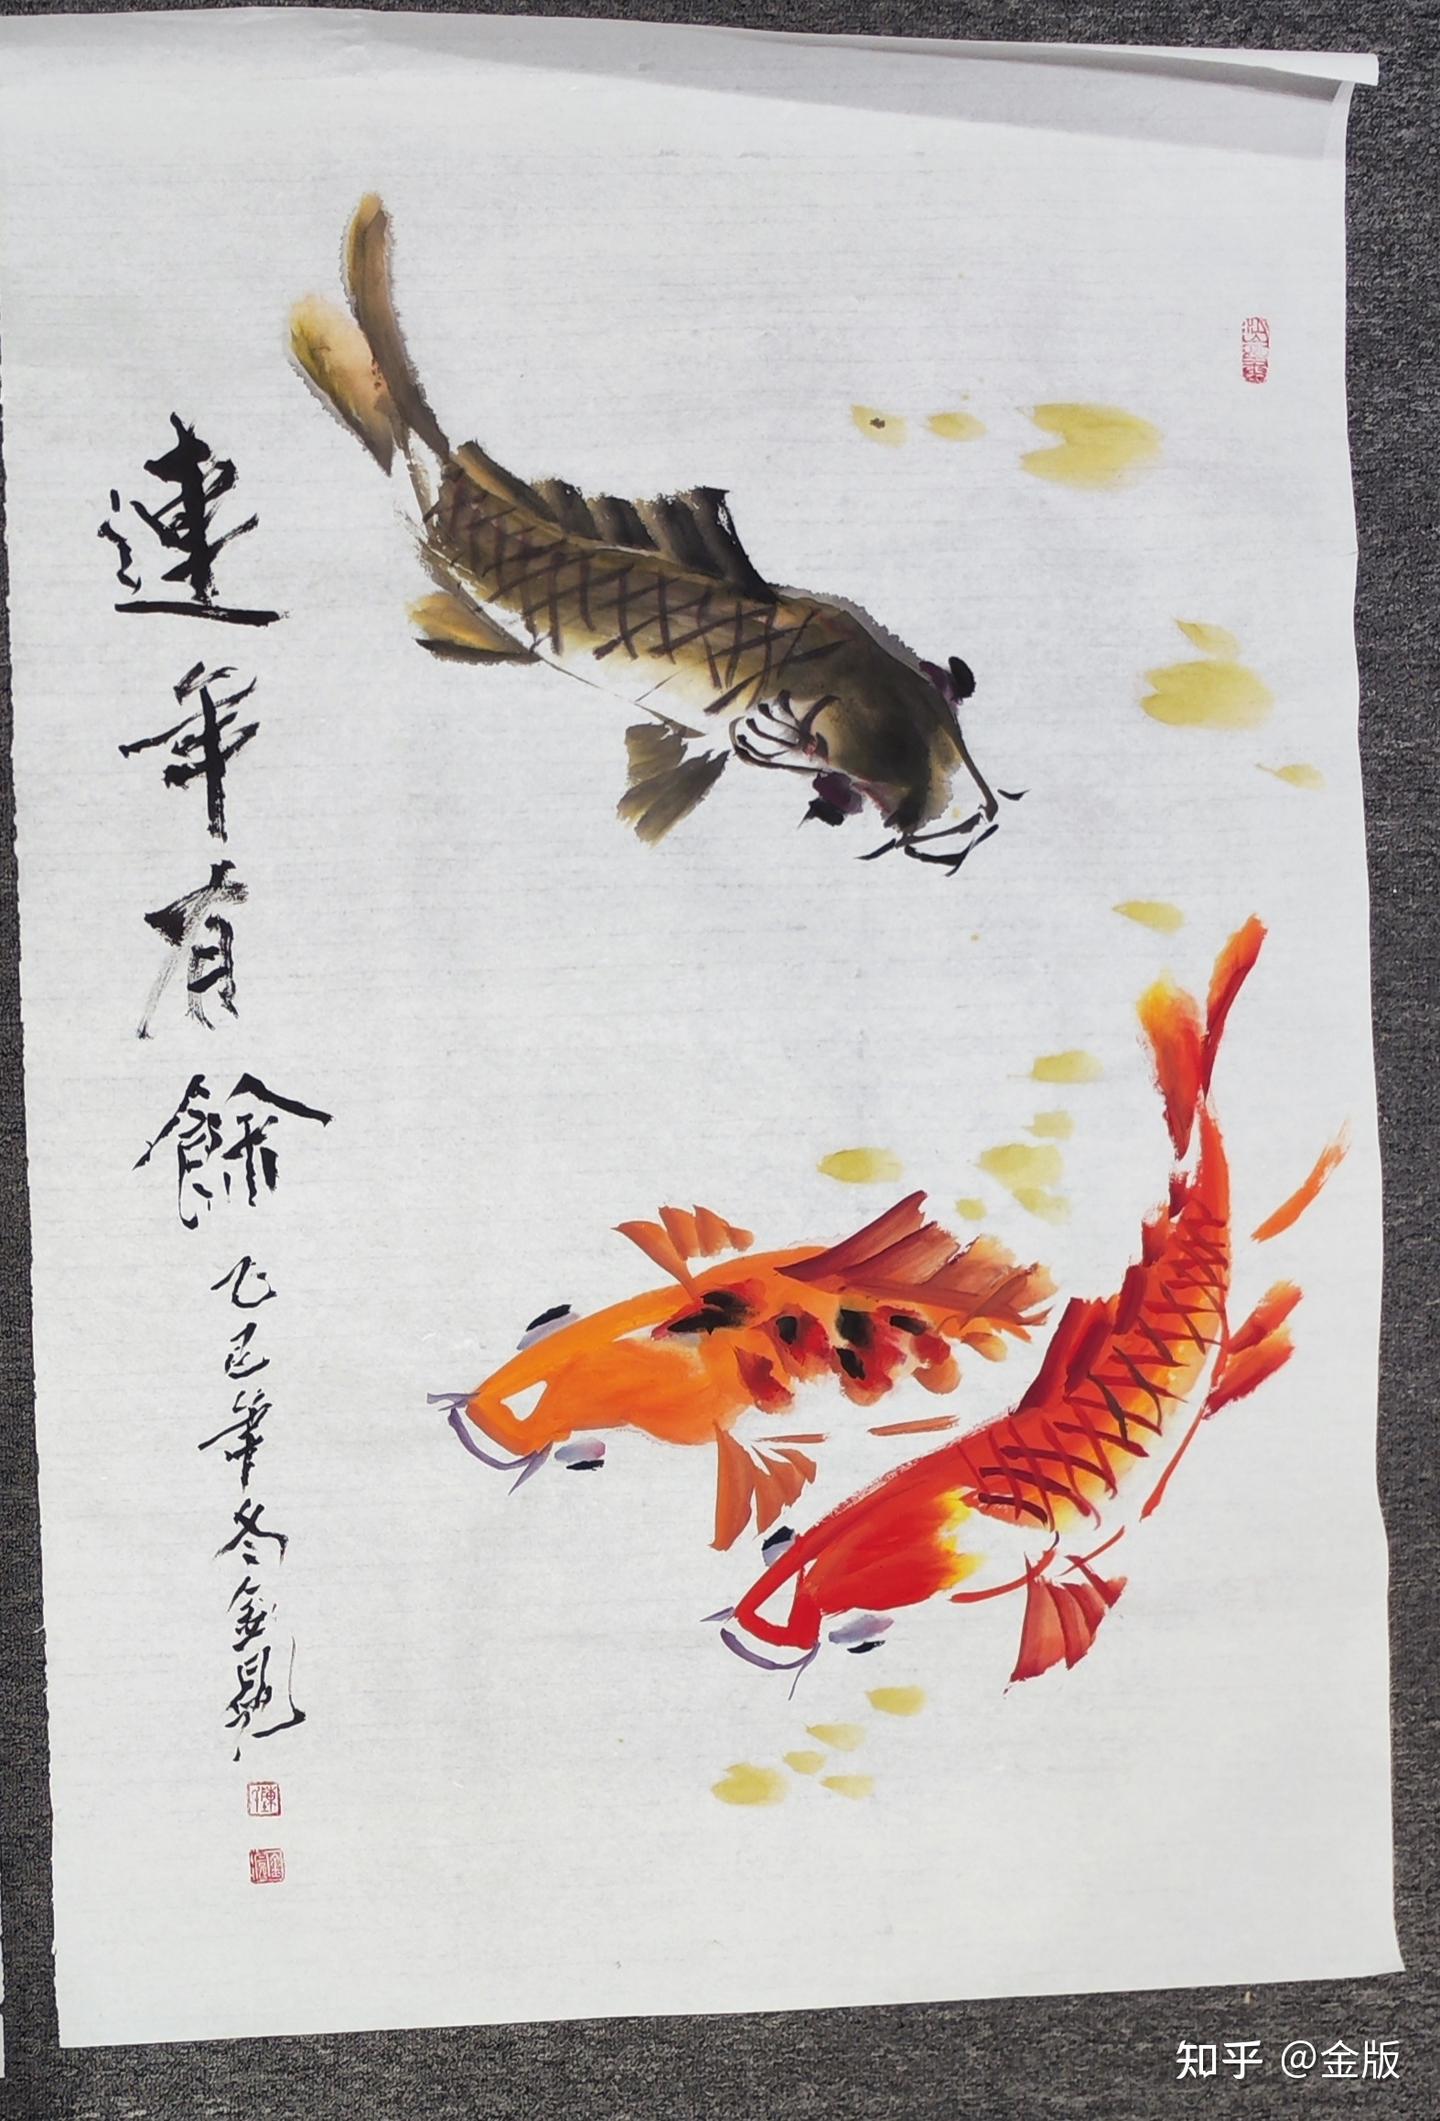 連年有餘
乙巳年冬金
知乎 @金版